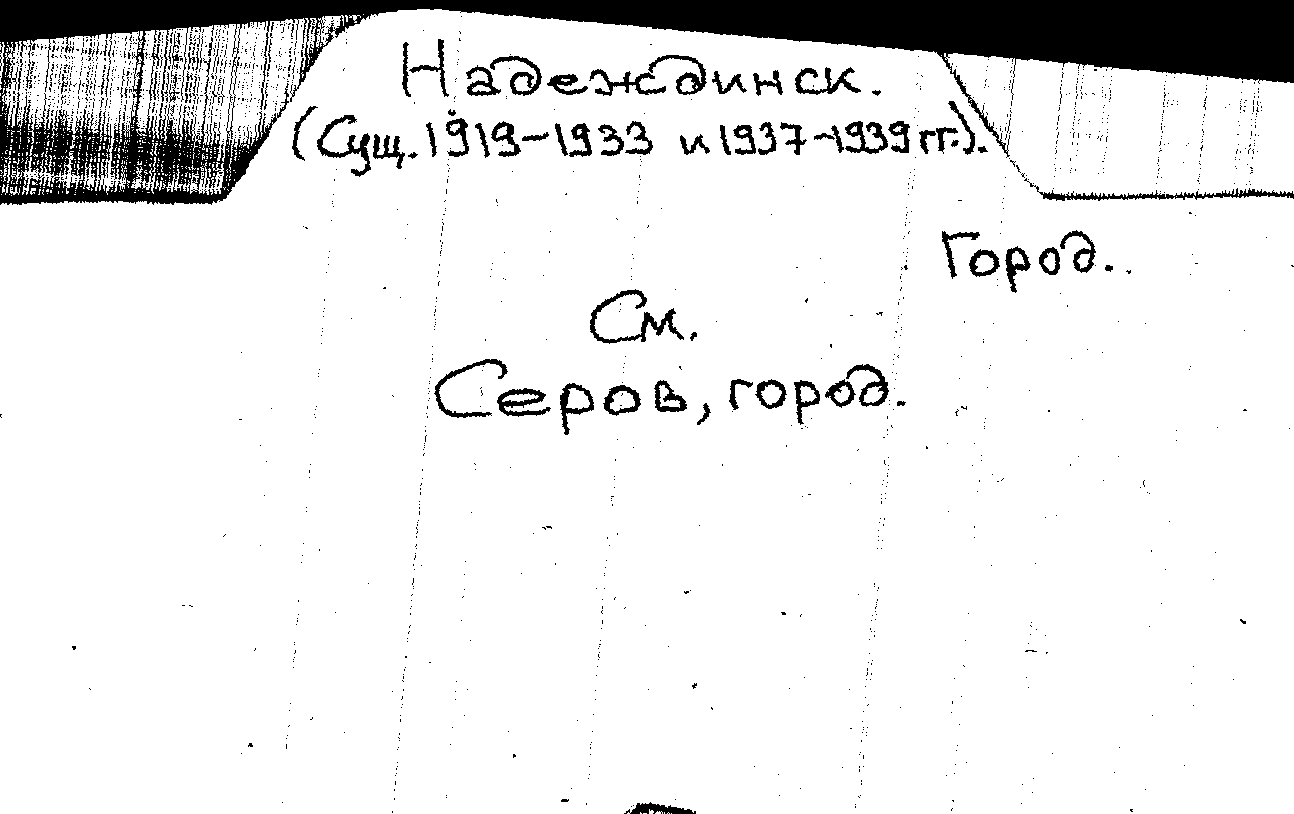 Надеждинск.
(Сущ. 1919-1933 и 1937-1939 гг.).
Город.
См.
Серов, город.